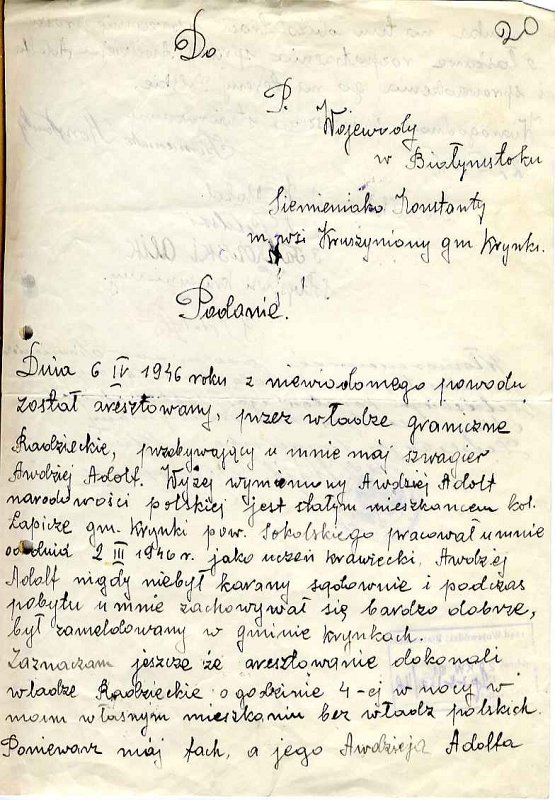 20
Do
P. Wojewody
w Białymstoku
Siemieniako Konstanty
m. wsi Kruszyniany gm Krynki.
Podanie!
Dnia 6 IV 1946 roku z niewiadomego powodu
został aresztowany, przez władze graniczne
Radzieckie, przebywający u mnie mój szwagier
Awdziej Adolf. Wyżej wymieniony Awdziej Adolf
narodowości polskiej jest stałym mieszkańcem kol.
Łapicze gm. Krynki pow. Sokolskiego pracował u mnie
od dnia 2 III 1946 r. jako uczeń krawiecki, Awdziej
Adolf nigdy niebył karany sądownie i podczas
pobytu u mnie zachowywał się bardzo dobrze,
był zameldowany w gminie Krynkach.
Zaznaczam jeszcze że aresztowanie dokonali
władze Radzieckie o godzinie 4-ej w nocy w
moim własnym mieszkaniu bez władz polskich.
Poniewarz mój fach, a jego Awdzieja Adolfa